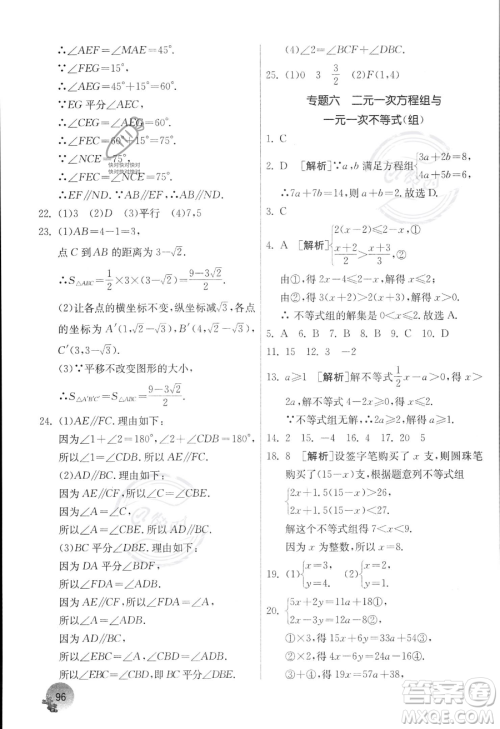 ∴∠AEF=∠MAE=45°.
∵∠FEG=15°,
∴∠AEG=45°+15°=60°.
∵EG平分∠AEC,
∴∠CEG=∠AEG=60°.
∴∠CEF=60°+15°=75°.
∵∠NCE=75°,
∴∠FEC=∠NCE.
∴EF∥ND. ∴AB∥ND.
22. (1)3 (2)D (3)平行 (4)7,5
23. (1)AB=4-1=3,
点C到AB的距离为3-√2.
∴S△ABC=1/2×3×(3-√2)=(9-3√2)/2.
(2)让各点的横坐标不变,纵坐标变为
A′(1,0),B′(4,0),
(3)∵平移不改变图形的大小,
∴S△A′B′C′=(9-3√2)/2.
24. (1)AE∥FC. 理由如下:
因为∠1+∠2=180°,∠2+∠CDB=180°,
所以∠1=∠CDB. 所以AE∥FC.
(2)AD∥BC. 理由如下:
因为AE∥CF,所以∠C=∠CBE.
因为∠A=∠C,所以∠A=∠CBE.
所以AD∥BC.
(3)BC平分∠DBE. 理由如下:
因为DA平分∠BDF,
所以∠FDA=∠ADB.
因为AE∥CF,AD∥BC,
所以∠FDA=∠A=∠CBE,
∠ADB=∠CBD.
所以∠EBC=∠CBD,即BC平分∠DBE.
96
(4)∠2=∠BCF+∠DCF
25. (1)0 3 3/2 (2)F(1,4)
专题六 二元一次方程组与
一元一次不等式(组)
1. C
2. D [解析]∵a,b满足方程组{3a+2b=8, 4a+5b=6,
∴7a+7b=14,∴a+b=2,故选D.
3. C
4. A [解析]{2(x-2)≤2-x①, (x+2)/2>(x+3)/3②,
由①,得2x-4≤2-x,得x≤2.
由②,得3x+6>2x+6,得x>0.
∴不等式组的解集是0<x≤2.
5. A 6. B 7. D 8. A 9. C 10. D
11. 15 12. 3 -2
13. a≥1 [解析]解不等式1/2x-a>0,得x>
2a. ∵不等式组无解,∴2a≥2,则a≥1.
14. 2 15. -4 16. 4 17. 20 5
18. 8 [解析]设签字笔购买了x支,则圆珠笔
购买了(15-x)支,根据题意列不等式组
{2x+1.5(15-x)>26, 2x+1.5(15-x)<27.
解不等式组得7<x<9.
因为x为整数,所以x=8.
19. (1){x=3, y=1. (2){x=4, y=2.
20. {2x-3y=a+1①, 5x+6y=11a+16②,
①×5,得10x-15y=5a+5③,
②×2,得10x+12y=22a+32④,